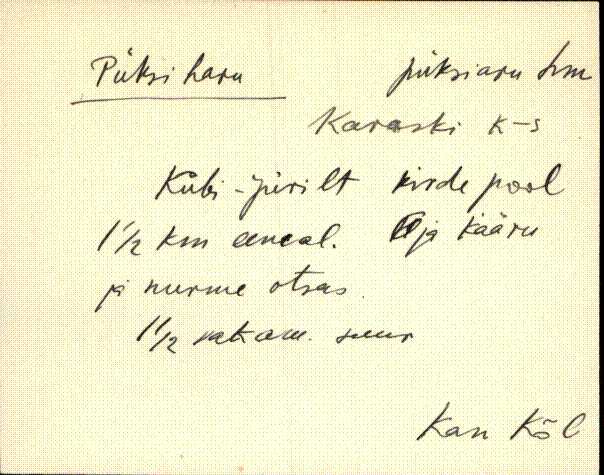 Püksiharu püksiaru hrm
Karaski k-s
Kübi-Jürilt kirde pool
1 1/2 km eemal. Oja kääru
ja nurme otsas.
1 1/2 vakam. suur
Kan Kõl